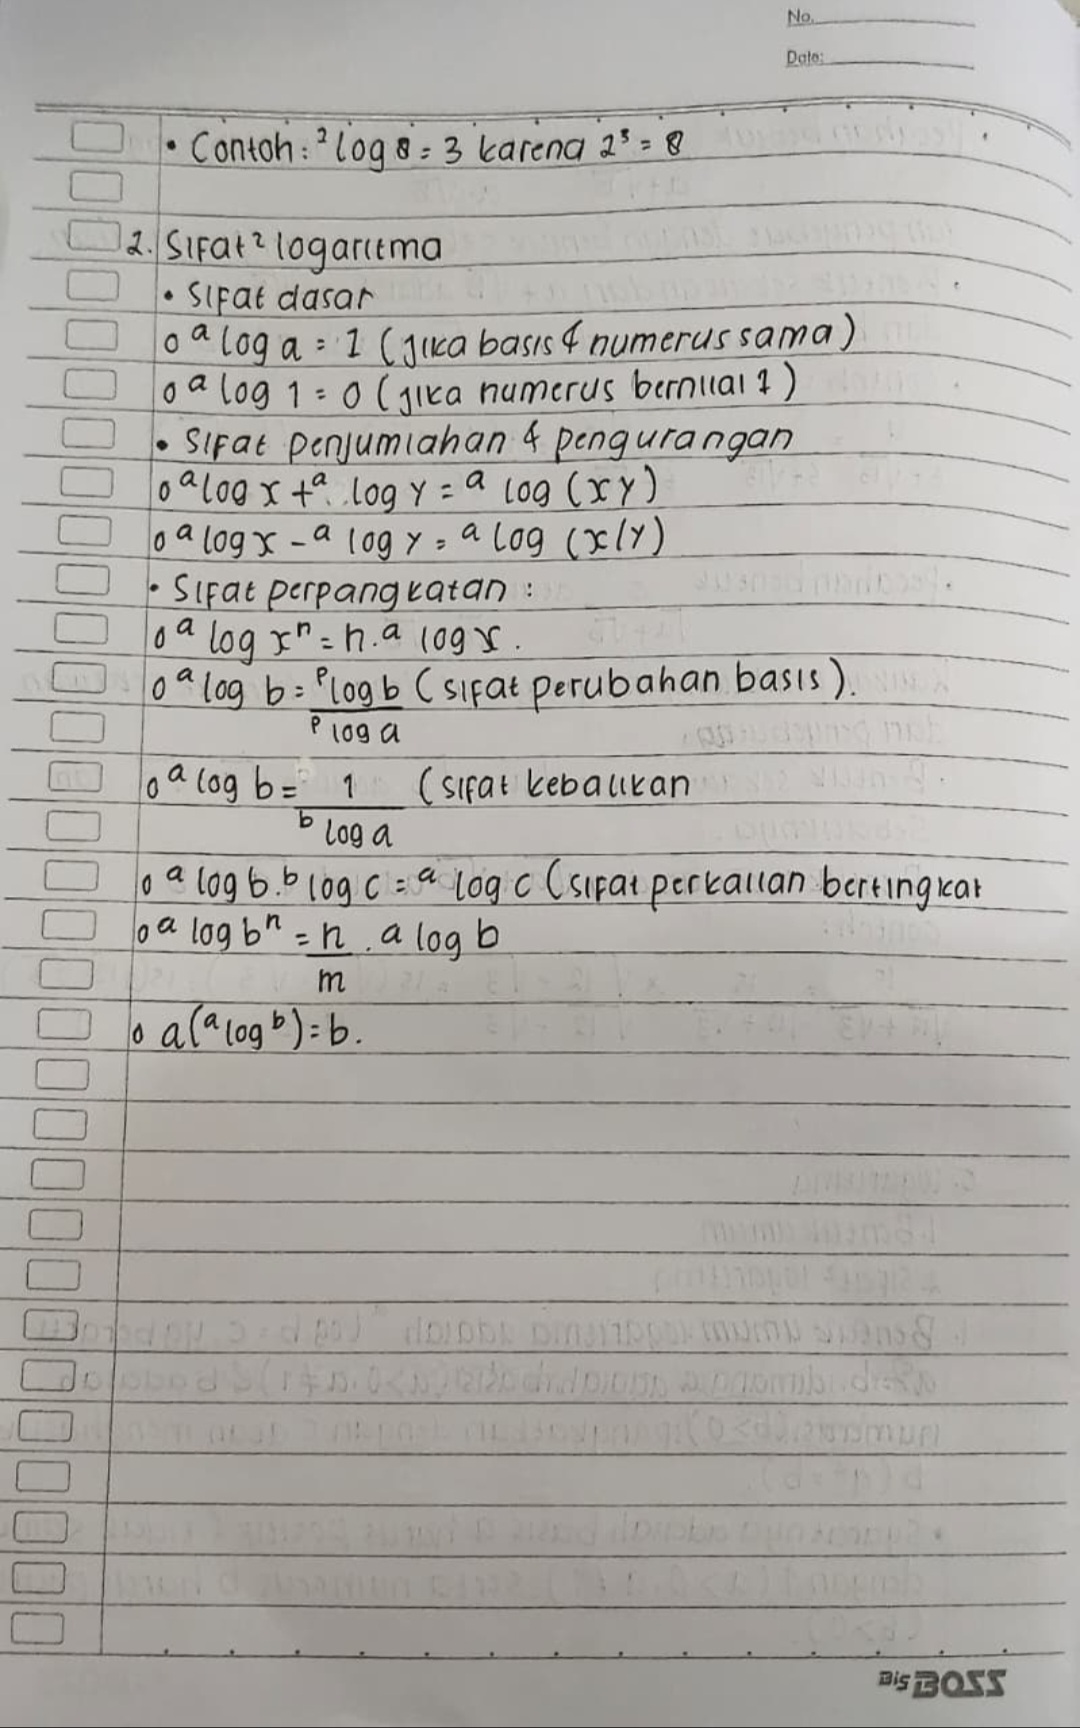 No.
Date:
• Contoh : ²log 8 = 3 karena 2³ = 8
2. Sifat² logaritma
• Sifat dasar
o ᵃ log a = 1 (jika basis & numerus sama)
o ᵃ log 1 = 0 (jika numerus bernilai 1)
• Sifat penjumlahan & pengurangan
o ᵃ log x + ᵃ log y = ᵃ log (xy)
o ᵃ log x - ᵃ log y = ᵃ log (x/y)
• Sifat perpangkatan :
o ᵃ log xⁿ = n . ᵃ log x .
o ᵃ log b = ᵖ log b (sifat perubahan basis).
ᵖ log a
o ᵃ log b = 1 (sifat kebalikan
ᵇ log a
o ᵃ log b . ᵇ log c = ᵃ log c (sifat perkalian bertingkat
o ᵃ log bⁿ = n . a log b
m
o a(ᵃ log ᵇ) = b .
Big BOSS